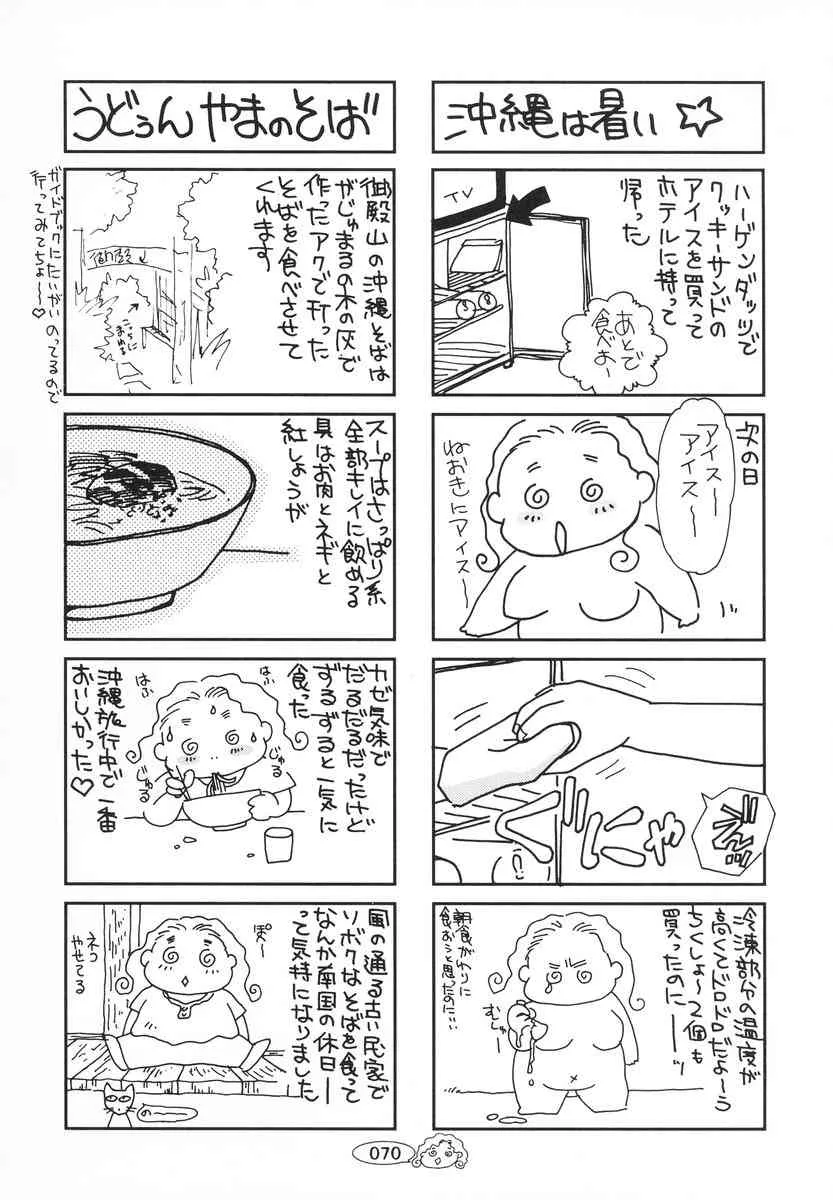 沖縄は暑い☆
ハーゲンダッツで
クッキーサンドの
アイスを買って
ホテルに持って
帰った
TV
あとで
食べよー
次の日
アイスー
アイス〜
ねおきにアイス〜
ベにゃ
冷凍部分の温度が
高くてドロドロだよ〜う
ちくしょ〜2個も
買ったのにーッ
むしゃー
朝食がわりに
食おうと思ったのに…
うどぅんやまのそば
御殿山の沖縄そばは
がじゅまるの木の灰で
作ったアクで打った
そばを食べさせて
くれます
ガイドブックにたいがいのってるので
行ってみてちょ〜〜♡
スープはさっぱり系
全部キレイに飲める
具はお肉とネギと
紅しょうが
カゼ気味で
だるだるだったけど
ずるずると一気に
食った
はふ
はふ
じゅる
じゅる
沖縄旅行中で一番
おいしかった♡
風の通る古い民家で
ソボクなそばを食って
なんか南国の休日ー
って気持になりました
ぽ〜
ネコ
やせてる
のー
070